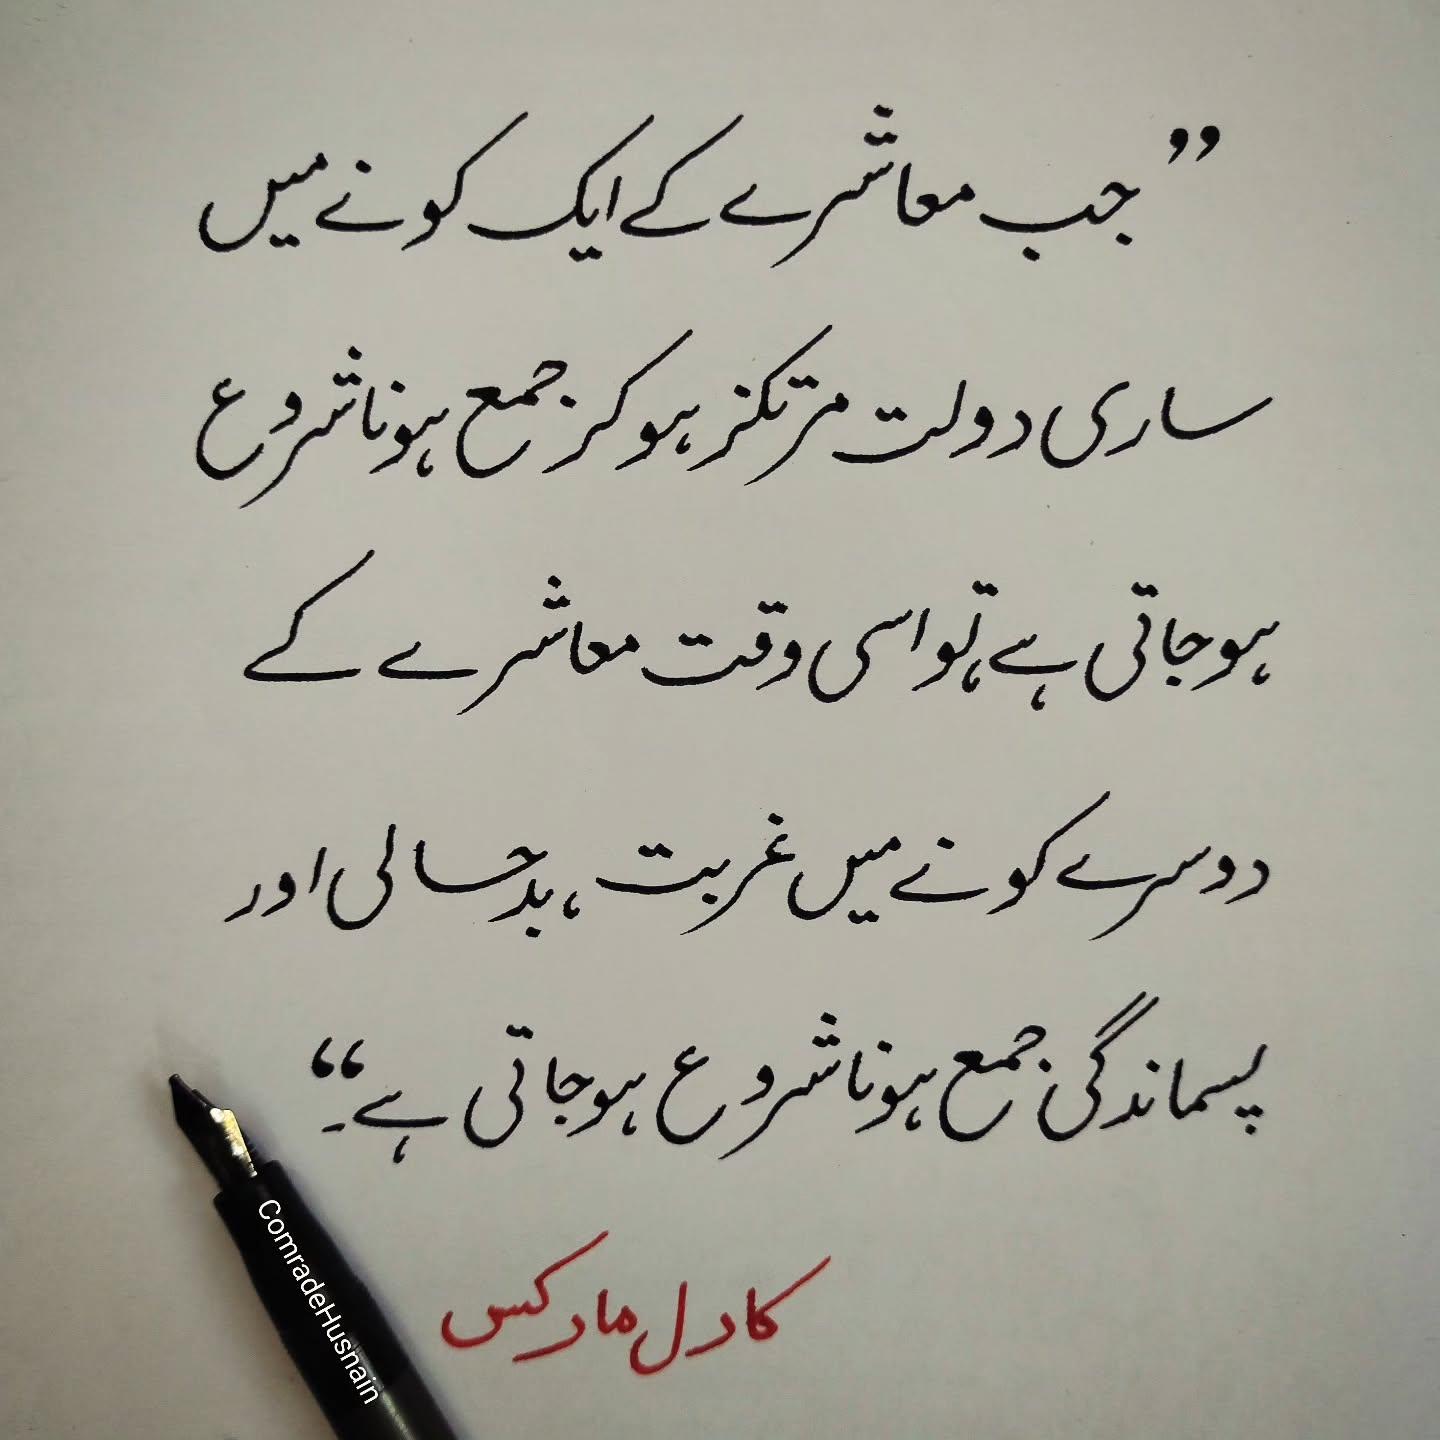 ”جب معاشرے کے ایک کونے میں
ساری دولت مرتکز ہو کر جمع ہونا شروع
ہو جاتی ہے، تو اسی وقت معاشرے کے
دوسرے کونے میں غربت، بدحالی اور
پسماندگی جمع ہونا شروع ہو جاتی ہے۔“
کارل مارکس
ComradeHusnain